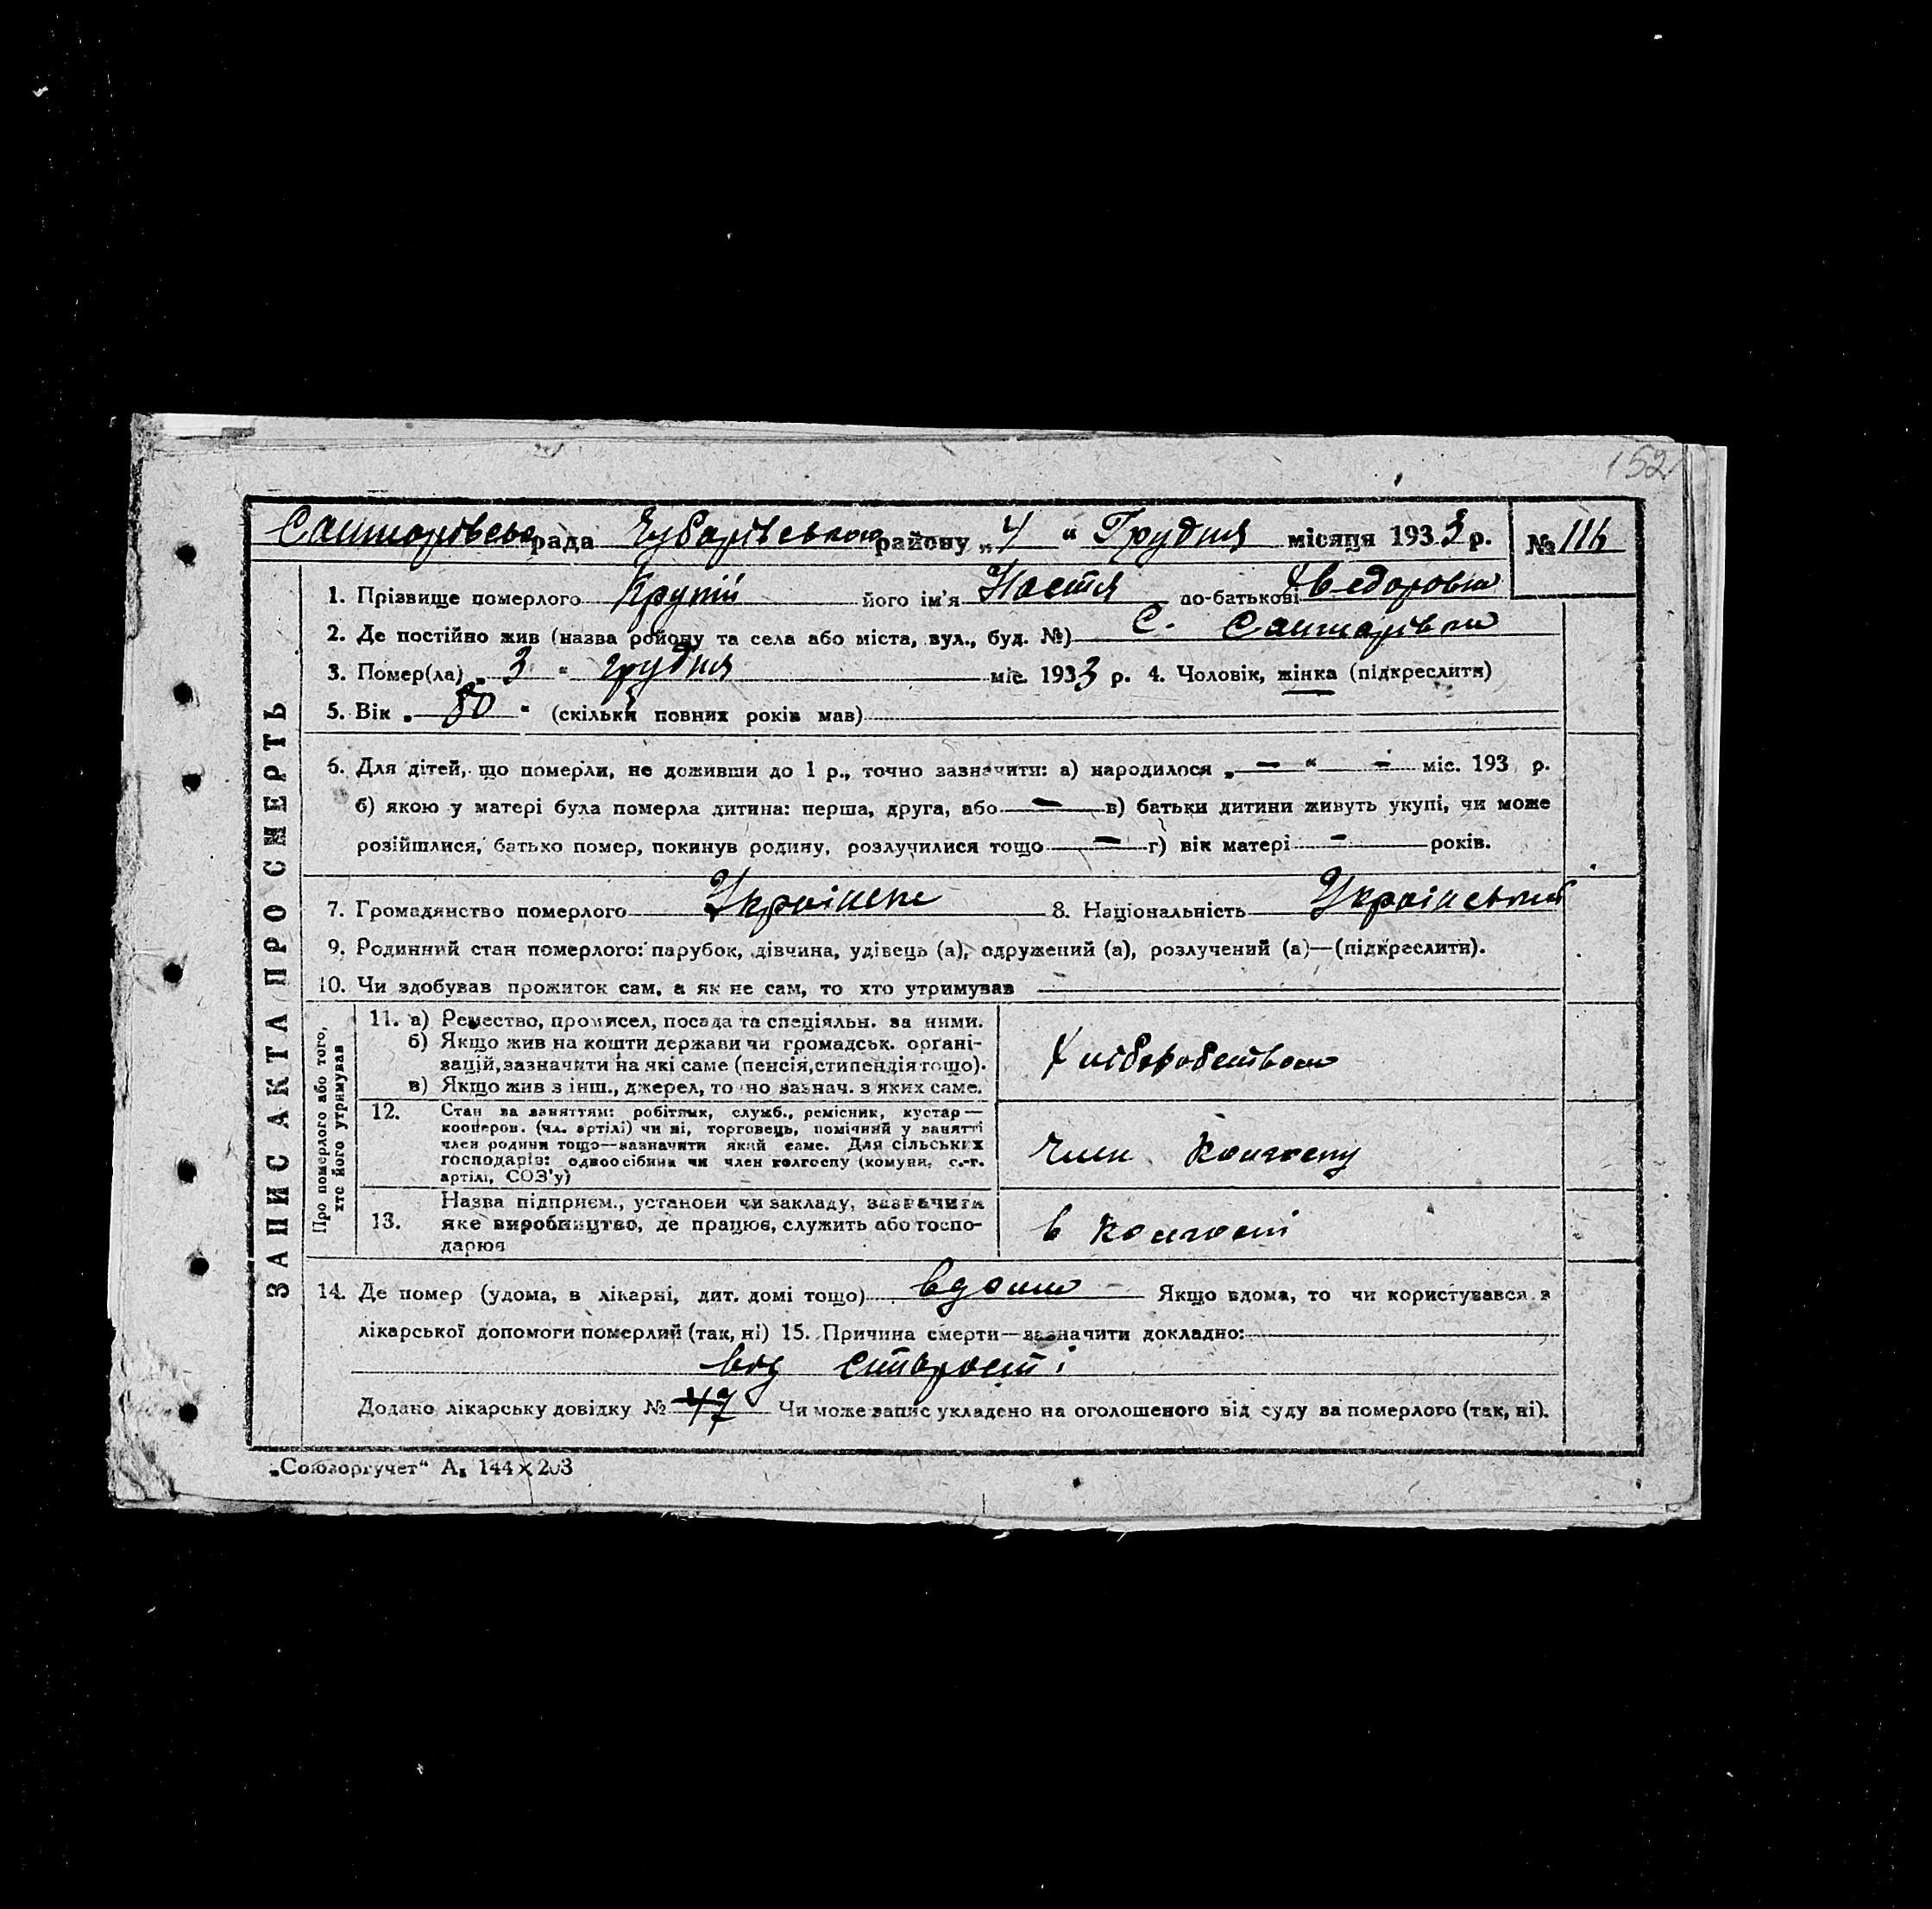 152
Санжарівська рада Чубарівського району „4“ Грудня місяця 1933 р. № 116
ЗАПИС АКТА ПРО СМЕРТЬ
1. Прізвище померлого Крупій його ім'я Настя по-батькові Хведоровна
2. Де постійно жив (назва ройону та села або міста, вул., буд. №) С. Санжарівка
3. Помер(ла) „3“ грудня міс. 1933 р. 4. Чоловік, жінка (підкреслити)
5. Вік „80“ (скільки повних років мав)
6. Для дітей, що померли, не доживши до 1 р., точно зазначити: а) народилося „—“ — міс. 193 р.
б) якою у матері була померла дитина: перша, друга, або — в) батьки дитини живуть укупі, чи може
розійшлися, батько помер, покинув родину, розлучилися тощо — г) вік матері — років.
7. Громадянство померлого Українське 8. Національність
9. Родинний стан померлого: парубок, дівчина, удівець (а), одружений (а), розлучений (а)—(підкреслити).
10. Чи здобував прожиток сам, а як не сам, то хто утримував
Про померлого або того,
хтс його утримував
11. а) Ремество, промисел, посада та спеціяльн. за ними.
б) Якщо жив на кошти держави чи громадськ. органі-
зацій, зазначити на які саме (пенсія, стипендія тощо).
в) Якщо жив з інш., джерел, точно зазнач. з яких саме.
Хліборобством
12. Стан за заняттям: робітник, служб., ремісник, кустар—
кооперов. (чл. артілі) чи ні, торговець, помічний у занятті
член родини тощо—зазначити який саме. Для сільських
господарів: одноосібник чи член колгоспу (комуни, с.-г.
артілі, СОЗ'у)
Член колгоспу
13. Назва підприєм., установи чи закладу, зазначити
яке виробництво, де працює, служить або госпо-
дарює
в колгоспі
14. Де помер (удома, в лікарні, дит. домі тощо) вдома Якщо вдома, то чи користувався з
лікарської допомоги померлий (так, ні) 15. Причина смерти—зазначити докладно:
від старості
Додано лікарську довідку № 47 Чи може запис укладено на оголошеного від суду за померлого (так, ні).
„Союзоргучет“ А₅ 144×203